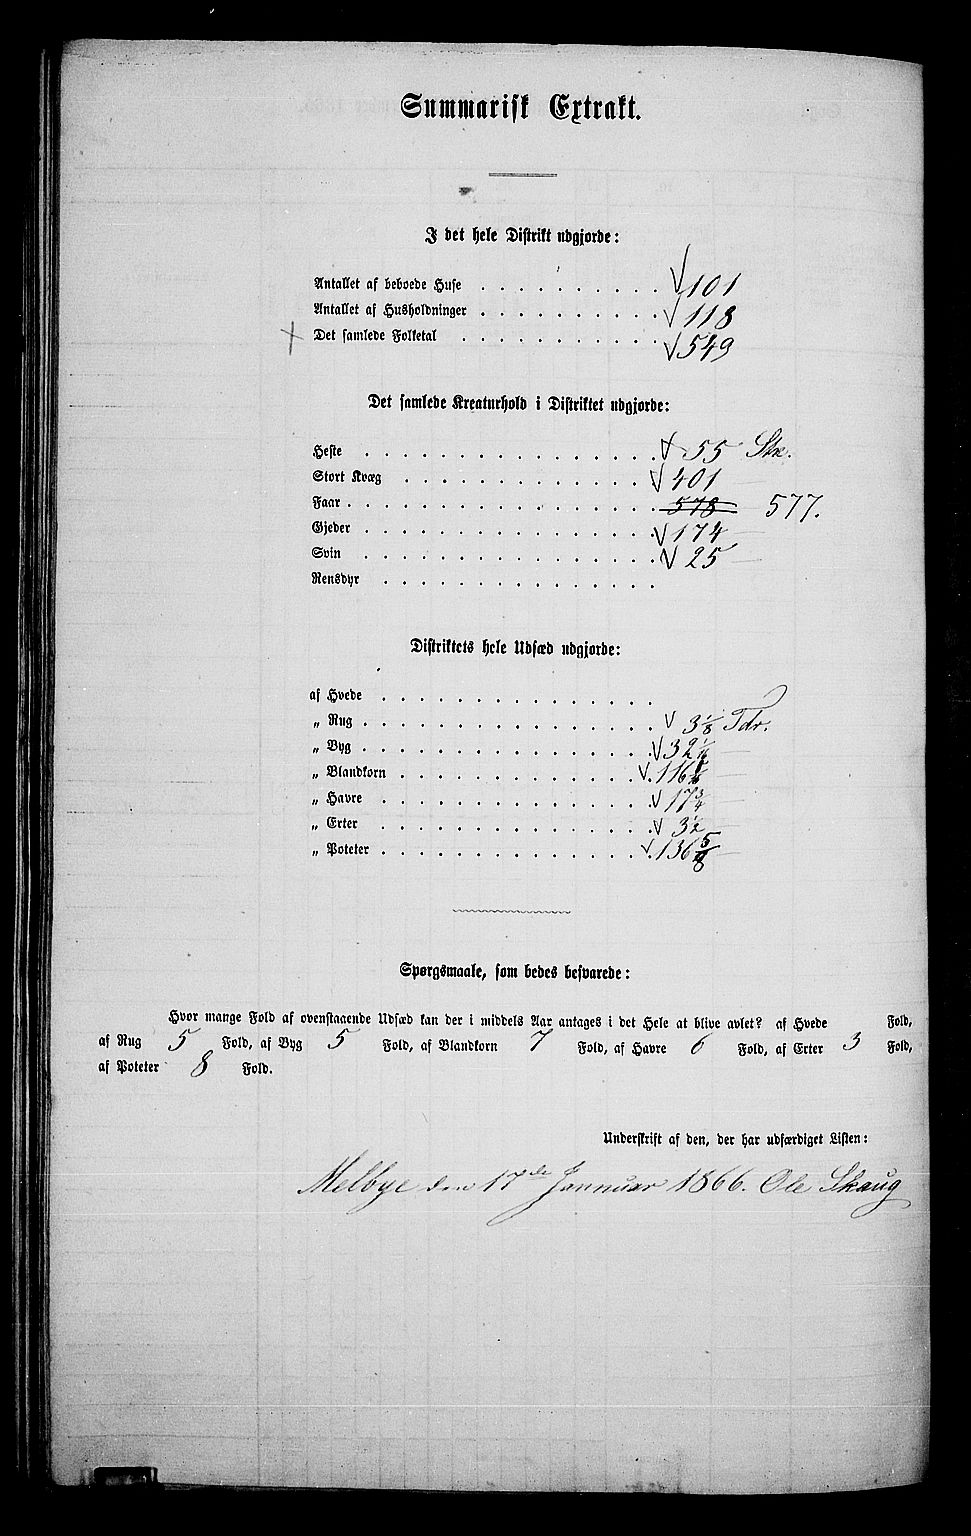 Summarisk Extrakt.
I det hele Distrikt udgjorde:
Antallet af beboede Huse . . . . . . . . . . 101
Antallet af Husholdninger . . . . . . . . . . 118
Det samlede Folketal . . . . . . . . . . . 549
Det samlede Kreaturhold i Distriktet udgjorde:
Heste . . . . . . . . . . . . . . . . 55 Stk.
Stort Kvæg . . . . . . . . . . . . . 401 —
Faar . . . . . . . . . . . . . . . . . 578 577.
Gjeder . . . . . . . . . . . . . . . 174 —
Svin . . . . . . . . . . . . . . . . 25 —
Rensdyr . . . . . . . . . . . . . . .
Distriktets hele Udsæd udgjorde:
af Hvede . . . . . . . . . . . . . . .
„ Rug . . . . . . . . . . . . . . . . 3 1/8 Tdr.
„ Byg . . . . . . . . . . . . . . . . 32 1/16 —
„ Blandkorn . . . . . . . . . . . . . 116 —
„ Havre . . . . . . . . . . . . . . . 17 3/4 —
„ Erter . . . . . . . . . . . . . . . 3 1/2 —
„ Poteter . . . . . . . . . . . . . . . 136 5/8 —
Spørgsmaale, som bedes besvarede:
Hvor mange Fold af ovenstaaende Udsæd kan der i middels Aar antages i det Hele at blive avlet? af Hvede Fold,
af Rug 5 Fold, af Byg 5 Fold, af Blandkorn 7 Fold, af Havre 6 Fold, af Erter 3 Fold,
af Poteter 8 Fold.
Underskrift af den, der har udfærdiget Listen:
Melbye den 17de Januar 1866. Ole Skaug